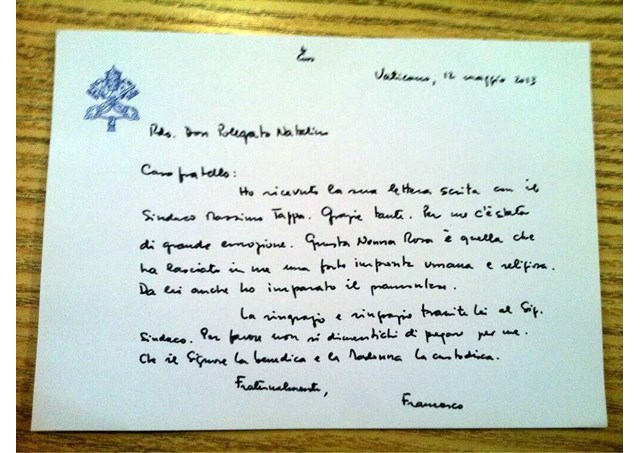 Vaticano, 12 maggio 2013
Rdo. Don Polegato Natalino
Caro fratello:
Ho ricevuto la sua lettera scritta con il
Sindaco Massimo Tappa. Grazie tante. Per me c'è stata
di grande emozione. Questa Nonna Rosa è quella che
ha lasciato in me una forte impronta umana e religiosa.
Da lei anche ho imparato il
La ringrazio e ringrazio tramite lei al Sig.
Sindaco. Per favore non si dimentichi di pregare per me.
Che il Signore la benedica e la Madonna la custodisca.
Fraternalmente,
Francesco